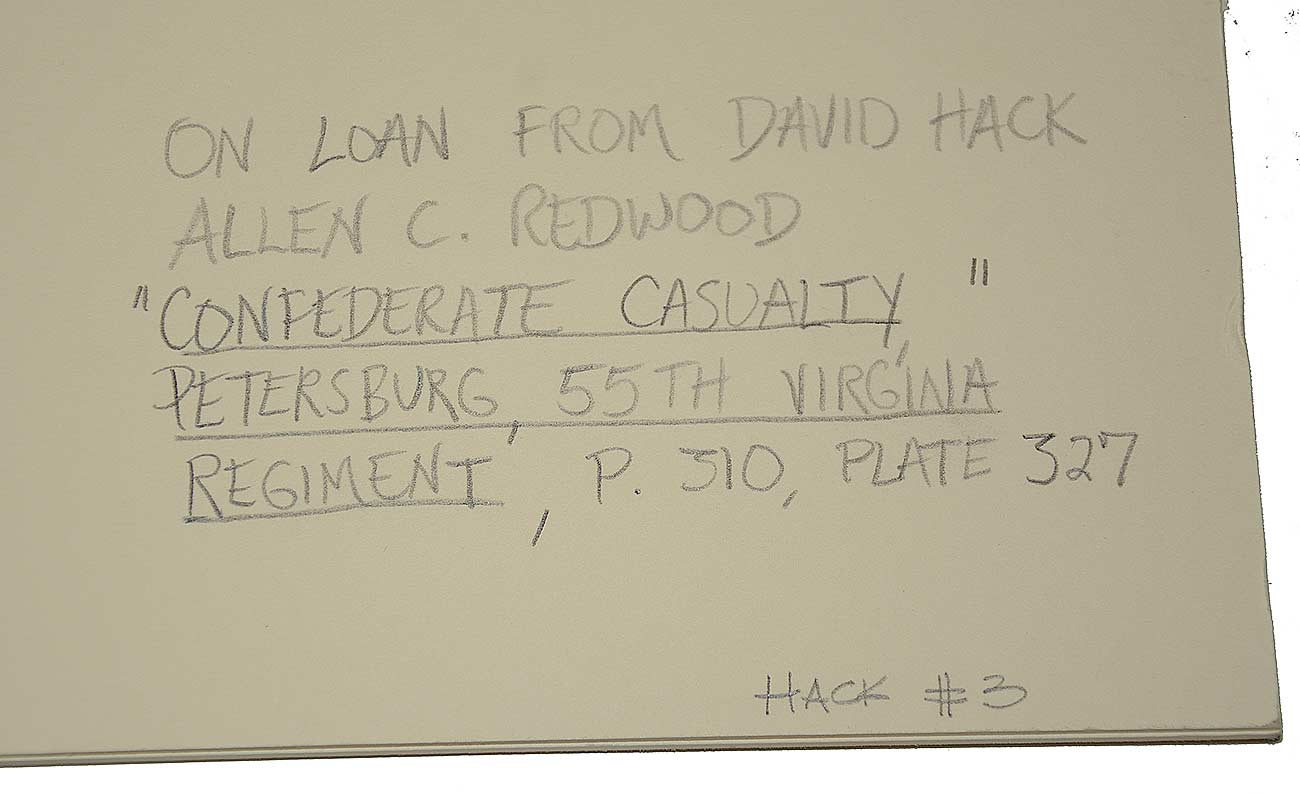 ON LOAN FROM DAVID HACK
ALLEN C. REDWOOD
"CONFEDERATE CASUALTY, "
PETERSBURG, 55TH VIRGINIA
REGIMENT, P. 310, PLATE 327
HACK #3